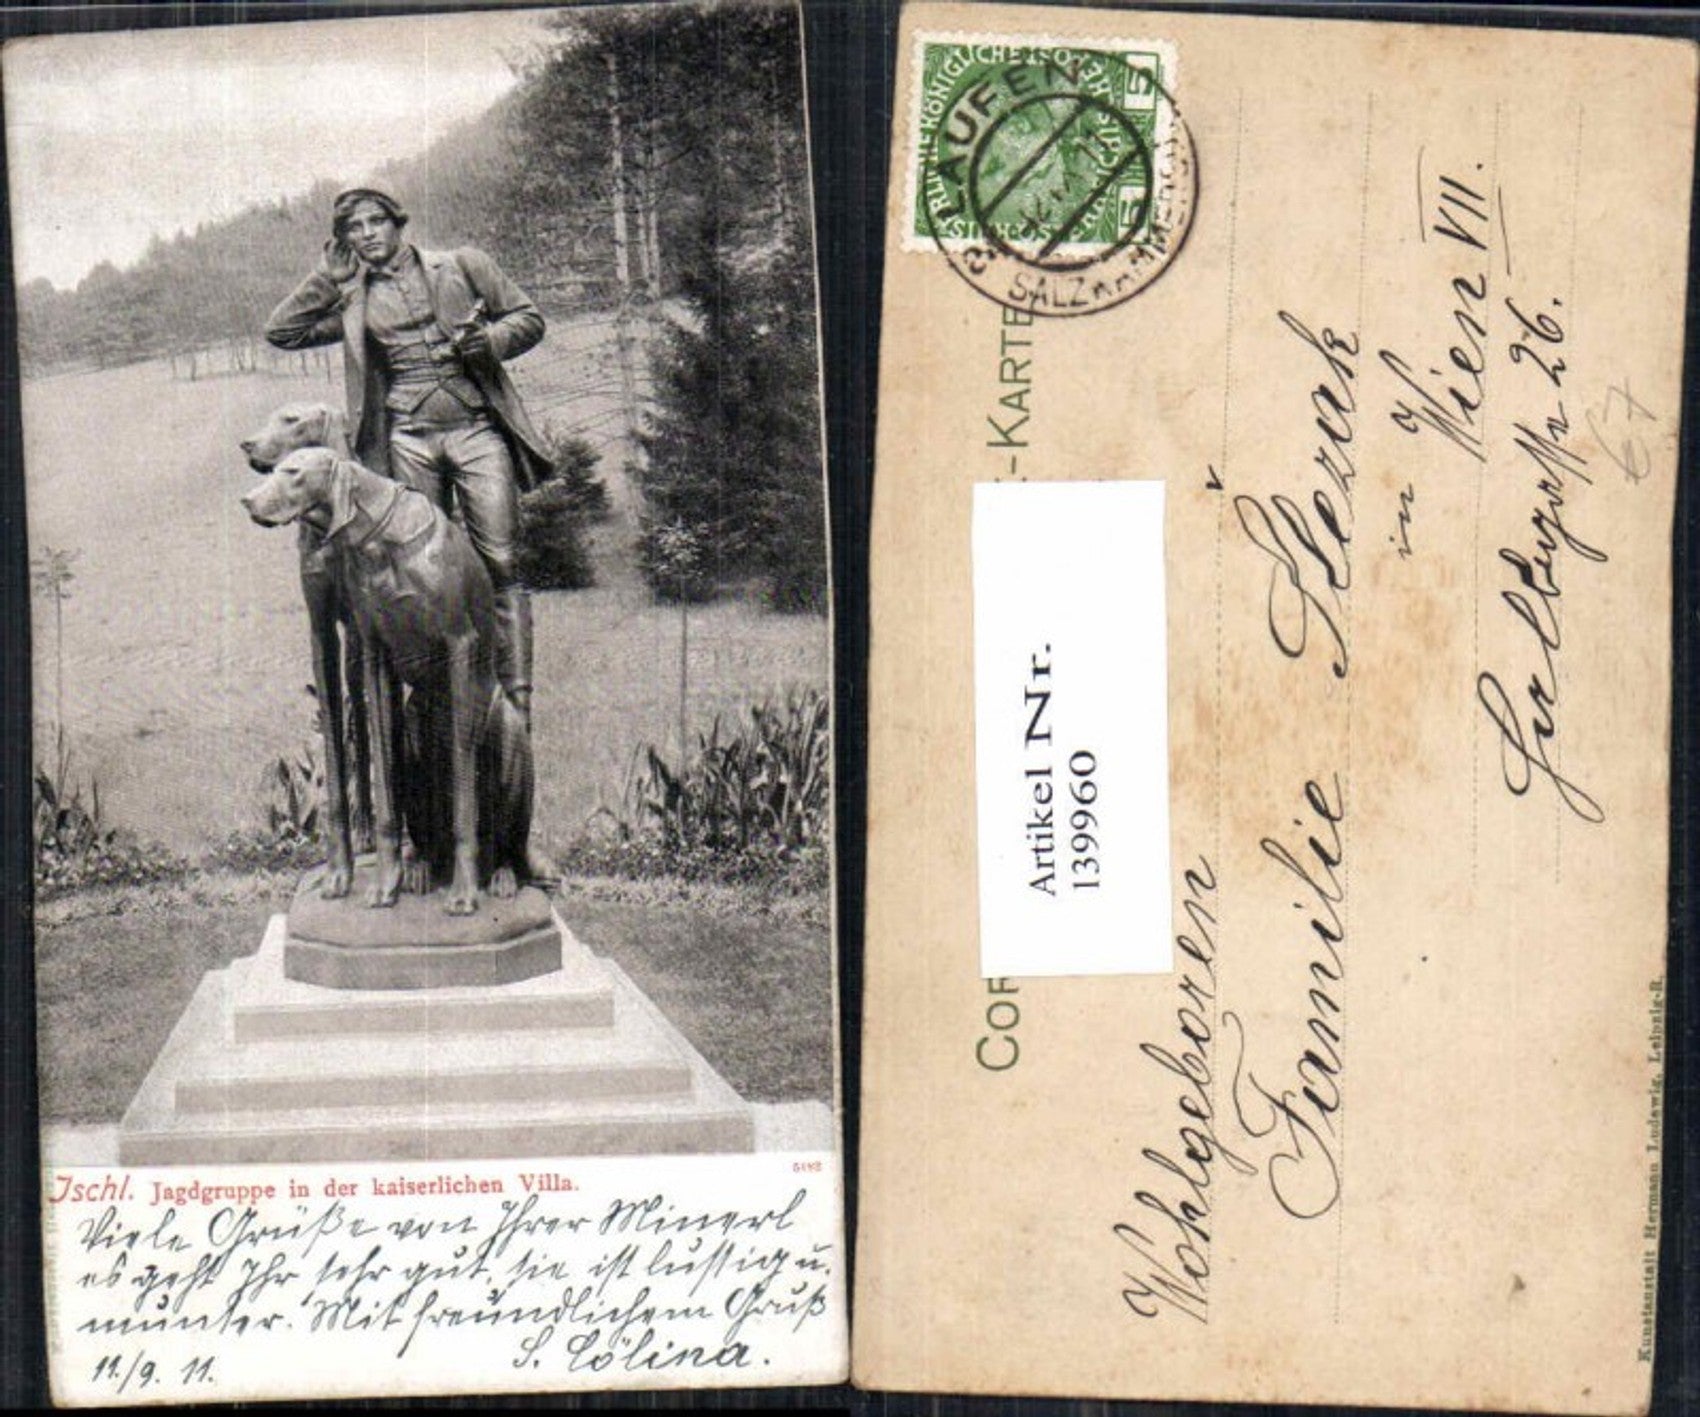 Ischl. Jagdgruppe in der kaiserlichen Villa.
5498
Viele Grüße von Ihrer Minerl
es geht Ihr sehr gut, sie ist lustig u.
munter. Mit freundlichem Gruß
11./9. 11.
LAUFEN
SALZKAMMERGUT
5
5
COR
-KARTE
Artikel Nr.
139960
Wohlgeboren
Familie Slezak
in Wien VII.
26.
€ 7
Kunstanstalt Hermann Ludewig, Leipzig-R.